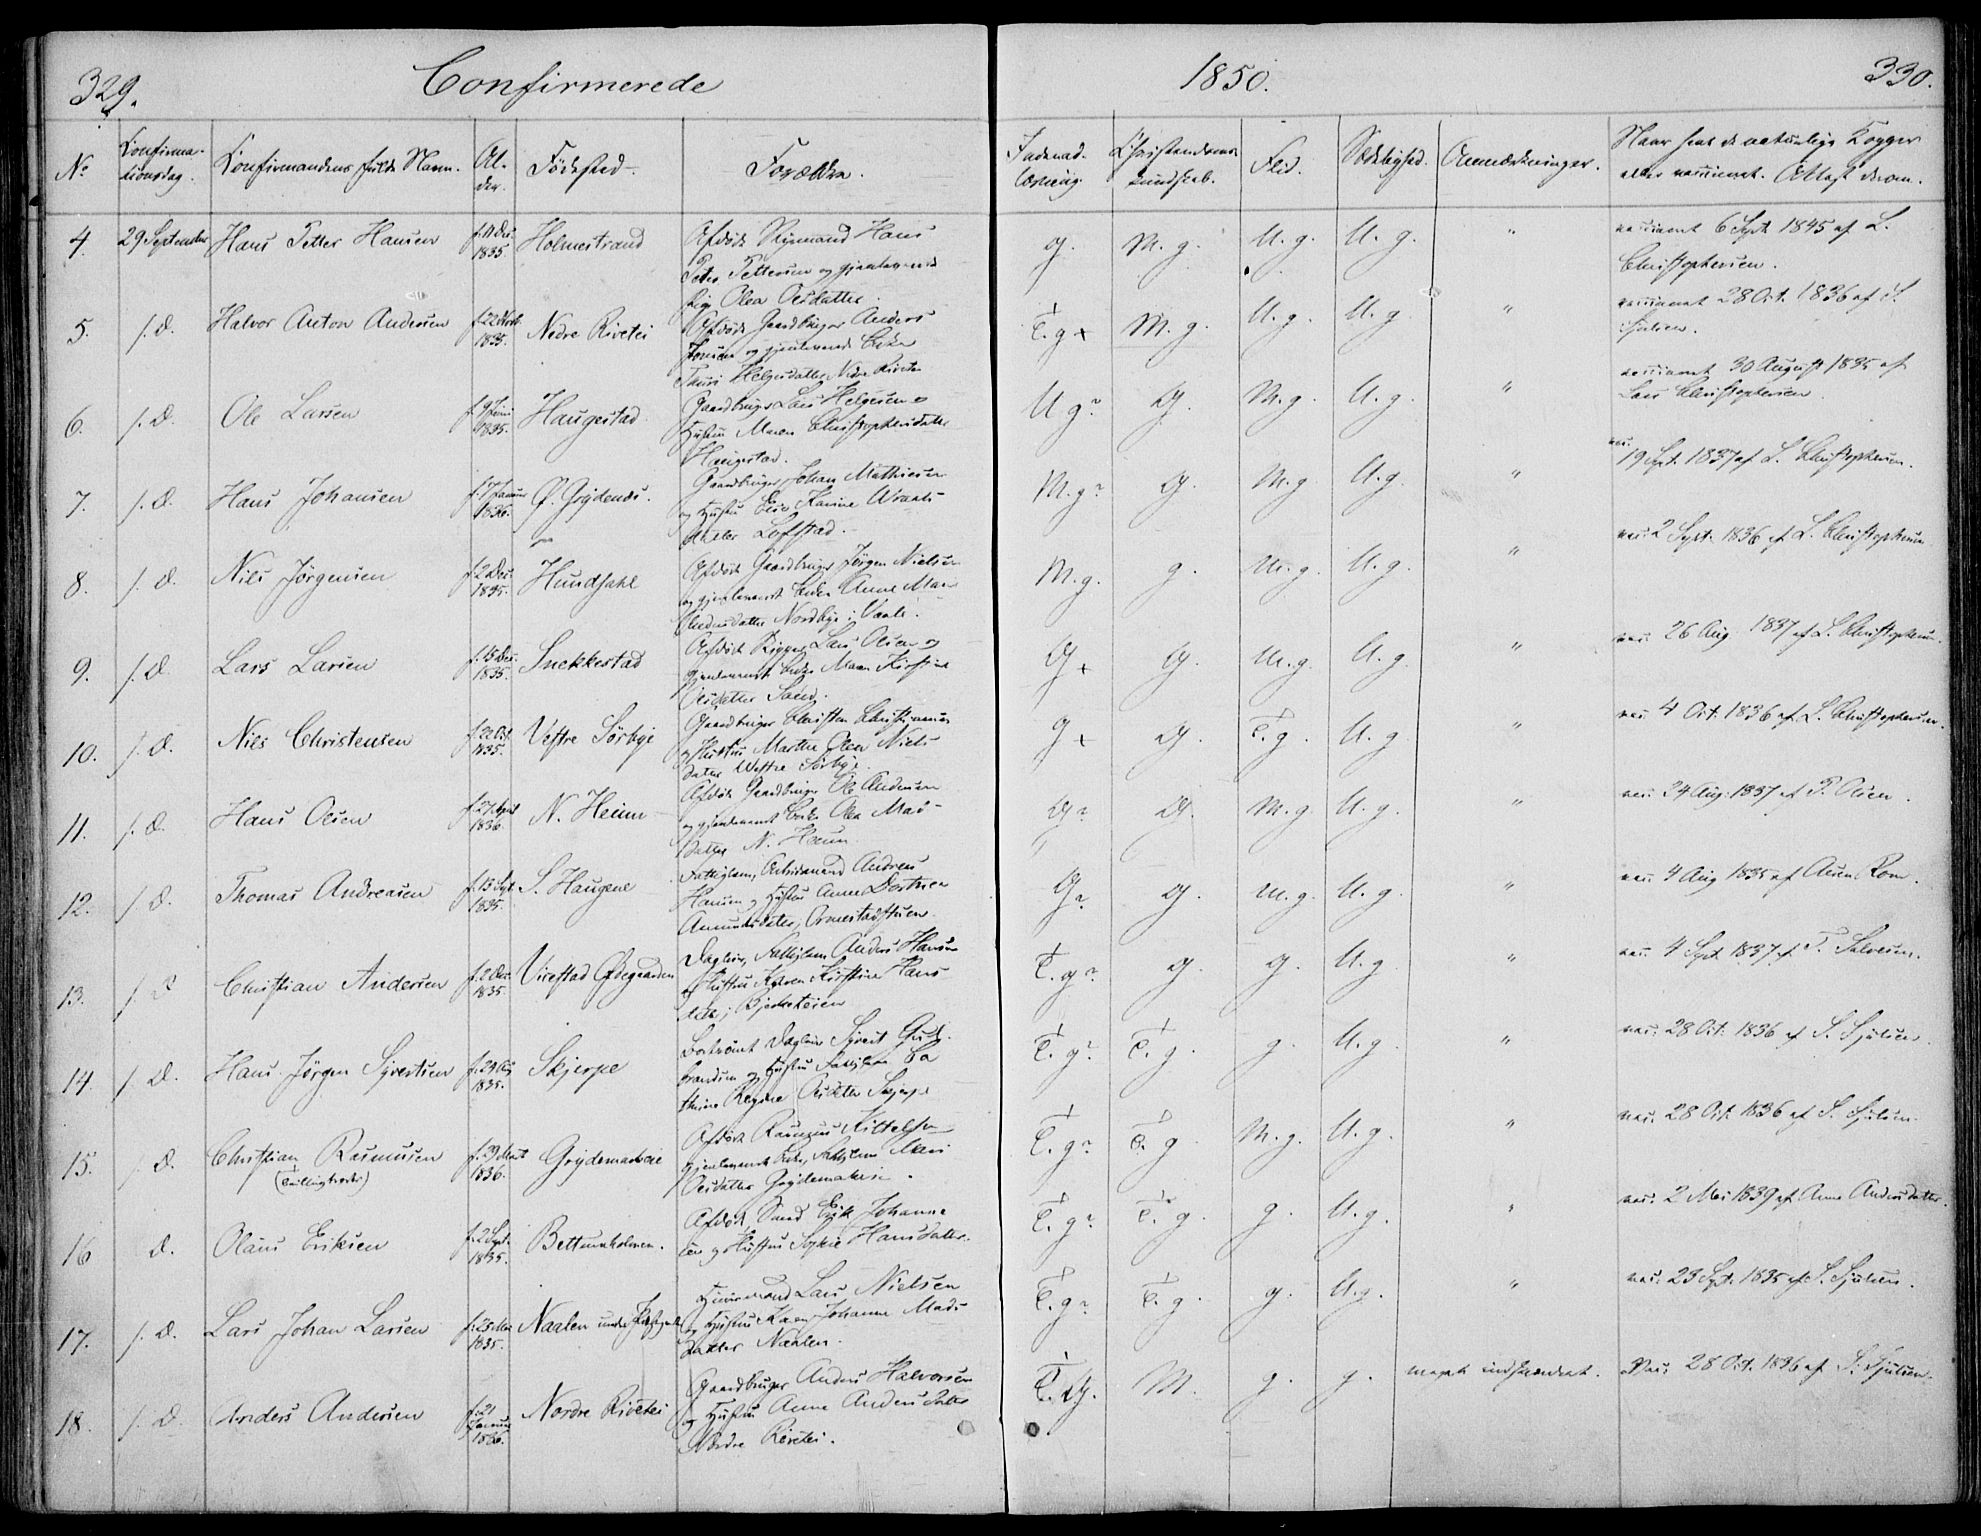 329.
Confirmerede
1850.
330.
No
Konfirma-
tionsdag.
Konfirmandens fulde Navn.
Al-
der.
Fødested.
Forældre.
Indenad-
læsning.
Christendoms-
kundskab.
Flid.
Sædelighed.
Anmærkninger.
Naar havt de naturlige Kopper
eller vaccineret. Attest derom.
4. 29 September Hans Petter Hansen f. 11 Dec. 1835. Holmestrand
Afdøde Styrmand Hans
Peter Pettersen og gjenlevende
Olea Olsdatter.
g. M. g. M. g. U. g. "
vaccineret 6 Sept. 1845 af L.
Christophersen.
5. s. D. Halvor Anton Andersen f. 22 Novb. 1835. Nedre Rivetei
Afdøde Gaardbruger Anders
og gjenlevende Enke
Helgesdatter Nedre Rivetei
T. g + M. g. U. g. U. g. "
vaccineret 28 Oct. 1836 af S.
Sjulsen.
6. s. D. Ole Larsen f. 9 Juni 1835. Haugestad
Gaardbruger Lars Helgesen og
Hustru Maren Christophersdatter
Haugestad.
U g? g. M. g. U. g. "
vaccineret 30 August 1835 af
Lars Christophersen.
7. s. D. Hans Johansen f. 17 Januar 1836. Ø. Grydenæs.
Gaardbruger Johan Mathiesen
og Hustru Karine
datter Lofstad.
M. g? g. M. g. U. g. "
vac.
19 Sept. 1837 af L. Christophersen.
8. s. D. Nils Jørgensen f. 2 Dec. 1835. Hundsahl
Afdøde Gaardbruger Jørgen Nielsen
og gjenlevende Enke Anne Marie
Andersdatter Nordbye i Vaale.
M. g. g. M. g. U. g. "
vac. 2 Sept. 1836 af L. Christophersen
9. s. D. Lars Larsen f. 15 Dec. 1835. Snekkestad
Afdøde Lars Olsen og
gjenlevende Enke Maren Kirstine
Olsdatter Sand.
g + g. M. g. U. g. "
vac. 26 Aug. 1837 af L. Christophersen.
10. s. D. Nils Christensen 1835. Vestre Sørbye
Gaardbruger Christen Christiansen
og Hustru Marthe Olea Niels
datter Westre Sørbye.
g + g. T. g. U. g. "
vac. 4 Oct. 1836 af L. Christophersen.
11. s. D. Hans Olsen f. 27 April 1836. N. Heum
Afdøde Gaardbruger Ole Andersen
og gjenlevende Enke Olea Mads-
datter N. Heum
g? g. M. g. U. g. "
vac. 24 Aug. 1837 af P. Olsen.
12. s. D. Thomas Andreasen f. 13 Sept. 1835. S. Haugene
Fattiglem, Arbeidsmand Andreas
Hansen og Hustru Anne Dorthea
Amundsdatter, Ormestadstuen.
g? g. M. g. U. g. "
vac. 4 Aug 1835 af Rom.
13. s. D. Christian Andersen f. 2 Dec. 1835. Virestad Ødegaarden
Dagleier, Fattiglem Anders Hansen
og Hustru Karen Kirstine Hans
datter, Bjerketeien
T. g? g. g. U. g. "
vac. 4 Sept. 1837 af T. Halvorsen.
14 s. D. Hans Jørgen Syvertsen f. 29 Aug 1835. Skjerpe
Bortrømt Dagleier Syvert Gul-
brandsen og Hustru Fattiglem Ca
thrine Regine Olsdatter Skjerpe
T. g? T. g. g. U. g. "
vac. 28 Oct. 1836 af S. Sjulsen.
15. s. D. Christian Rasmussen f. 29 Marts 1836. Grydemarkeie
(Tvillingbroder)
Afdøde Rasmus Kittelsen
gjenlevende Enke, Fattiglem Mari
Olsdatter Grydemarkeie.
T. g? T. g M. g. U. g. "
vac. 28 Oct. 1836 af S. Sjulsen.
16 D. Olaus Eriksen f. 2 Sept. 1835. Bettumholmen.
Afdøde Erik Johanne
sen og Hustru Sophie Hansdatter.
T. g? T. g. g. U. g. "
vac. 2 Mai 1839 af Anne Andersdatter.
17. s. D. Lars Johan Larsen f. 25 Mai 1835. Naalen under
Huusmand Lars Nielsen
og Hustru Karen Johanne Mads
datter Naalen.
T. g? T. g. g. U. g. "
vac. 23 Sept. 1835 af S. Sjulsen.
18. s. D. Anders Andersen f. 21 Januar 1836. Nordre Rivetei
Gaardbruger Anders Halvorsen
og Hustru Anne Andersdatter
Nordre Rivetei.
T. g. M. g. g. meget indskrænket.
Vac. 28 Oct. 1836 af S. Sjulsen.